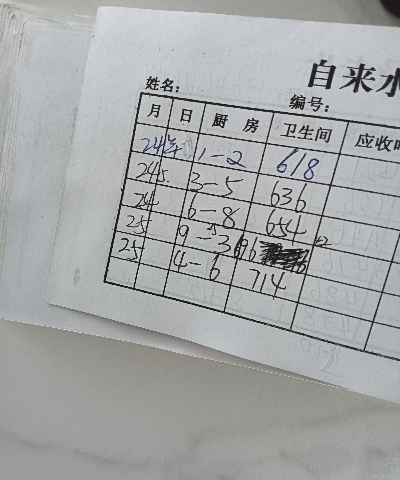 自来水
姓名： 编号：
月 日 厨 房 卫生间 应收
24年 1-2 618
245 3-5 636
24 6-8 654
25 9-3 696
25 4-6 714